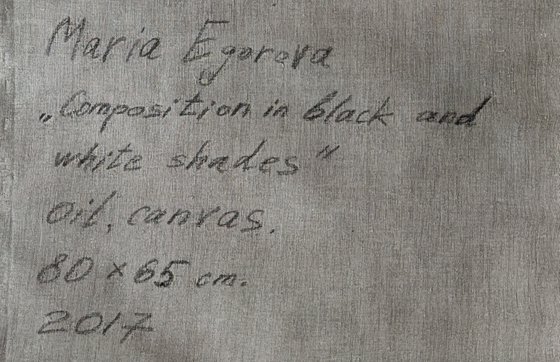 Maria Egorova
„Composition in black and
white shades"
Oil, canvas.
80 × 65 cm.
2017